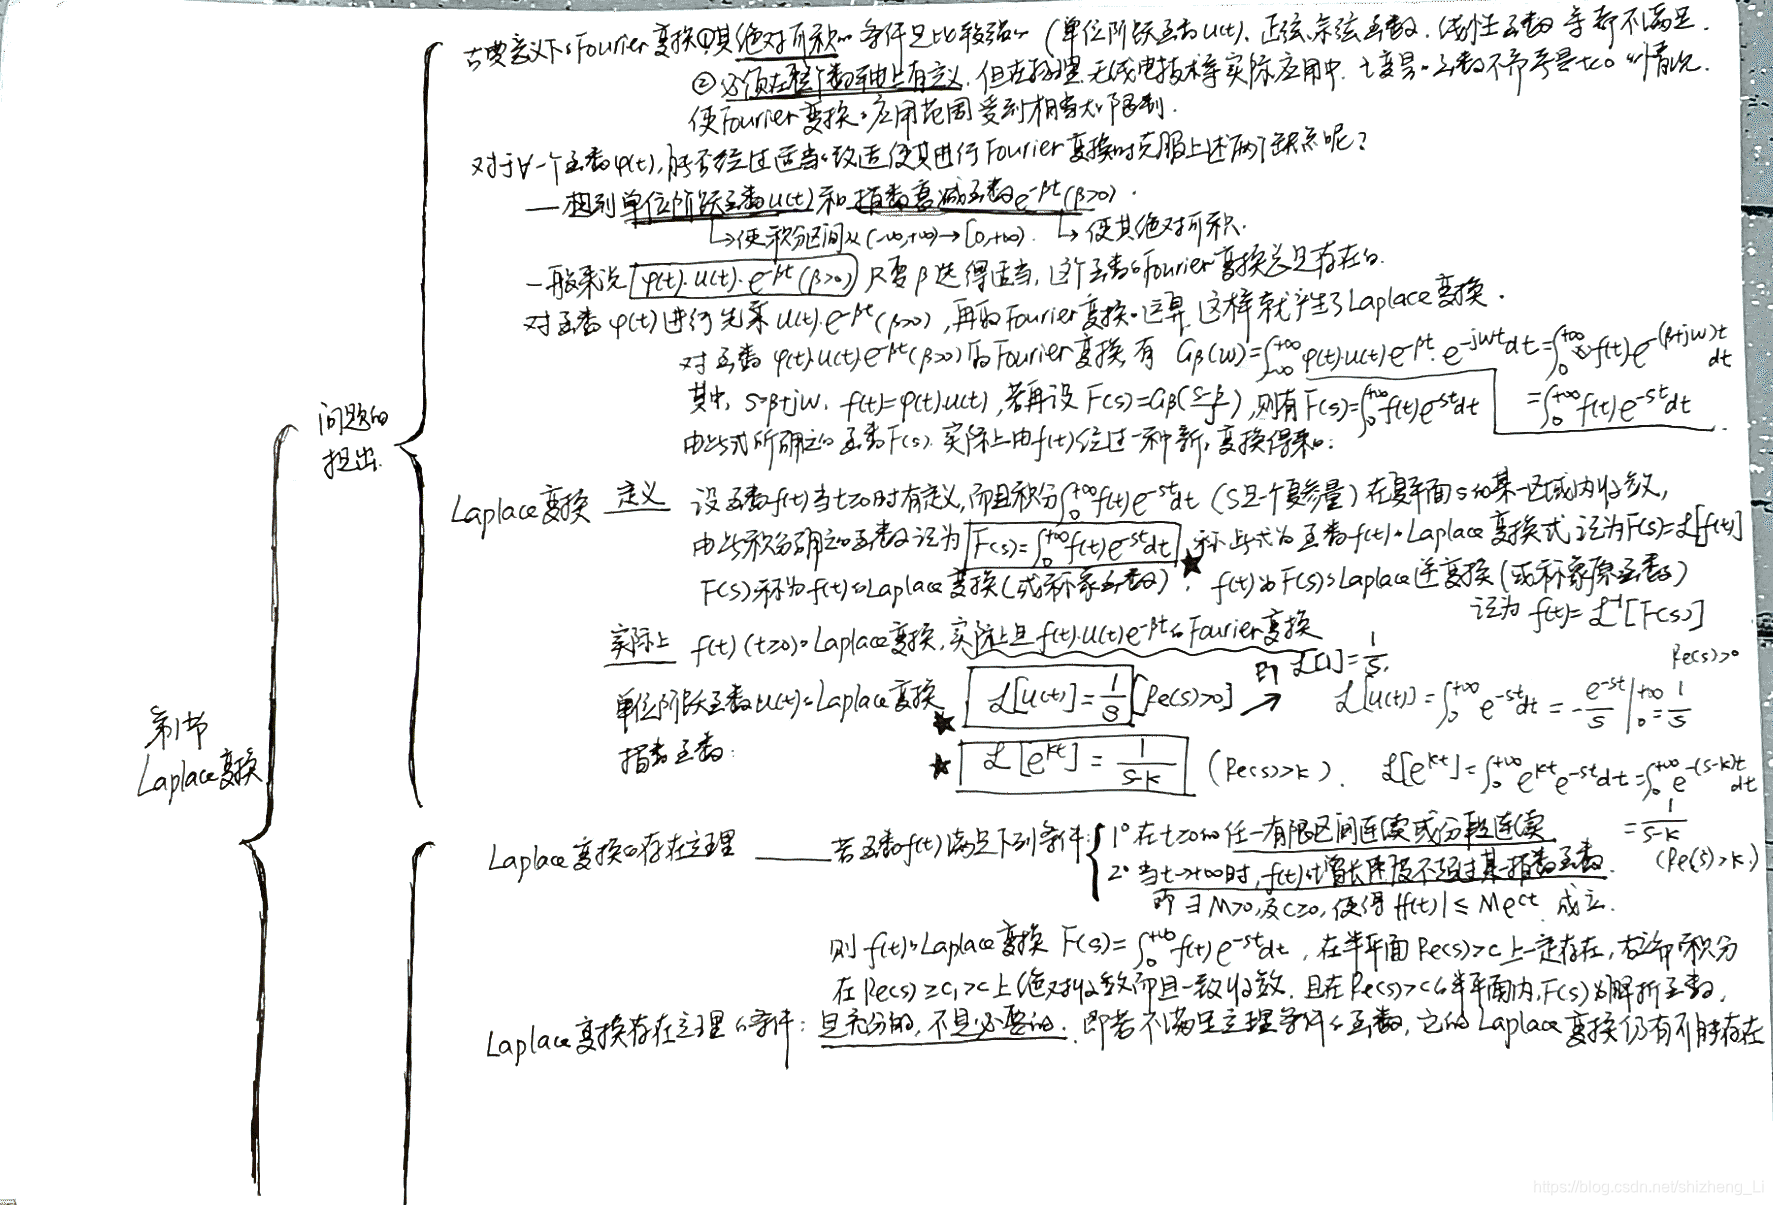 古典意义下的Fourier变换①其绝对可积的条件是比较强的(单位阶跃函数u(t)、正弦、余弦函数、线性函数等都不满足.
②必须在整个数轴上有定义,但在物理、无线电技术等实际应用中,t变量的函数不需考虑t<0的情况.
使Fourier变换的应用范围受到相当大的限制.
对于∀一个函数φ(t),能否经过适当的改造使其进行Fourier变换时克服上述两个缺点呢?
—想到单位阶跃函数u(t)和指数衰减函数e^{-βt}(β>0).
↳使积分区间从(-∞,+∞)→[0,+∞). ↳使其绝对可积.
一般来说 φ(t)·u(t)·e^{-βt}(β>0) 只要β选得适当,这个函数的Fourier变换总是存在的.
对函数φ(t)进行先乘u(t)·e^{-βt}(β>0),再取Fourier变换的运算,这样就产生了Laplace变换.
对函数φ(t)u(t)e^{-βt}(β>0)取Fourier变换有 G_β(w)=∫_{-∞}^{+∞}φ(t)·u(t)e^{-βt}·e^{-jwt}dt=∫_0^{+∞}f(t)e^{-(β+jw)t}dt
其中, s=β+jw, f(t)=φ(t)u(t),若再设F(s)=G_β(\frac{s-β}{j}),则有F(s)=∫_0^{+∞}f(t)e^{-st}dt =∫_0^{+∞}f(t)e^{-st}dt
由此式所确定的函数F(s),实际上由f(t)经过一种新的变换得来的.
问题的
提出.
Laplace变换 定义 设函数f(t)当t≥0时有定义,而且积分∫_0^{+∞}f(t)e^{-st}dt (s是一个复参量)在复平面s的某一区域内收敛,
由此积分确定的函数记为 F(s)=∫_0^{+∞}f(t)e^{-st}dt ★ 称此式为函数f(t)的Laplace变换式 记为F(s)=ℒ[f(t)]
F(s)称为f(t)的Laplace变换(或称象函数), f(t)为F(s)的Laplace逆变换(或称象原函数)
记为 f(t)=ℒ^{-1}[F(s)]
实际上 f(t)(t≥0)的Laplace变换,实际上是f(t)·u(t)e^{-βt}的Fourier变换
即 ℒ[1]=\frac{1}{s}. Re(s)>0
单位阶跃函数u(t)的Laplace变换 ★ ℒ[u(t)]=\frac{1}{s} [Re(s)>0] ↗ ℒ[u(t)]=∫_0^{+∞}e^{-st}dt=-\frac{e^{-st}}{s}|_0^{+∞}=\frac{1}{s}
第1节
Laplace变换
指数函数: ★ ℒ[e^{kt}]=\frac{1}{s-k} (Re(s)>k). ℒ[e^{kt}]=∫_0^{+∞}e^{kt}e^{-st}dt=∫_0^{+∞}e^{-(s-k)t}dt
=\frac{1}{s-k}
(Re(s)>k)
Laplace变换的存在定理 —— 若函数f(t)满足下列条件: 1° 在t≥0的任一有限区间连续或分段连续
2° 当t→+∞时,f(t)的增长速度不超过某一指数函数.
即∃M>0,及c≥0,使得|f(t)|≤Me^{ct} 成立.
则f(t)的Laplace变换 F(s)=∫_0^{+∞}f(t)e^{-st}dt, 在半平面Re(s)>c上一定存在,右端的积分
在Re(s)≥c₁>c上绝对收敛而且一致收敛,且在Re(s)>c的半平面内,F(s)为解析函数.
Laplace变换存在定理的条件: 是充分的,不是必要的. 即若不满足定理条件的函数,它的Laplace变换仍有可能存在
https://blog.csdn.net/shizheng_Li